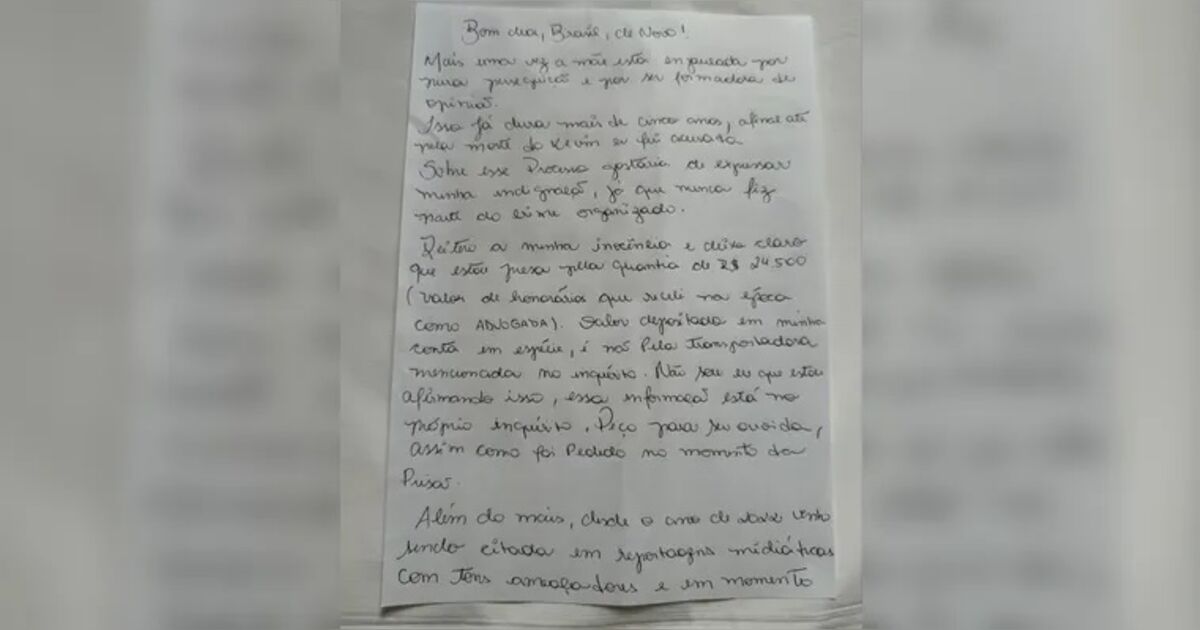 Bom dia, Brasil, de Novo!
Mais uma vez a mãe está enjaulada por
pura perseguição e por ser formadora de
opinião.
Isso já dura mais de cinco anos, afinal até
pela morte do Kevin eu fui acusada
Sobre esse Processo gostaria de expressar
minha indignação, já que nunca fiz
parte do crime organizado.
Reitero a minha inocência e deixo claro
que estou presa pela quantia de R$ 24.500
(valor de honorários que recebi na época
como ADVOGADA). Valor depositado em minha
conta em espécie, e não pela transportadora
mencionada no inquérito. Não sou eu que estou
afirmando isso, essa informação está no
próprio inquérito. Peço para ser ouvida,
assim como foi Pedido no momento da
Prisão.
Além do mais, desde o ano de 2022 venho
sendo citada em reportagens midiáticas
com tons ameaçadores e em momento